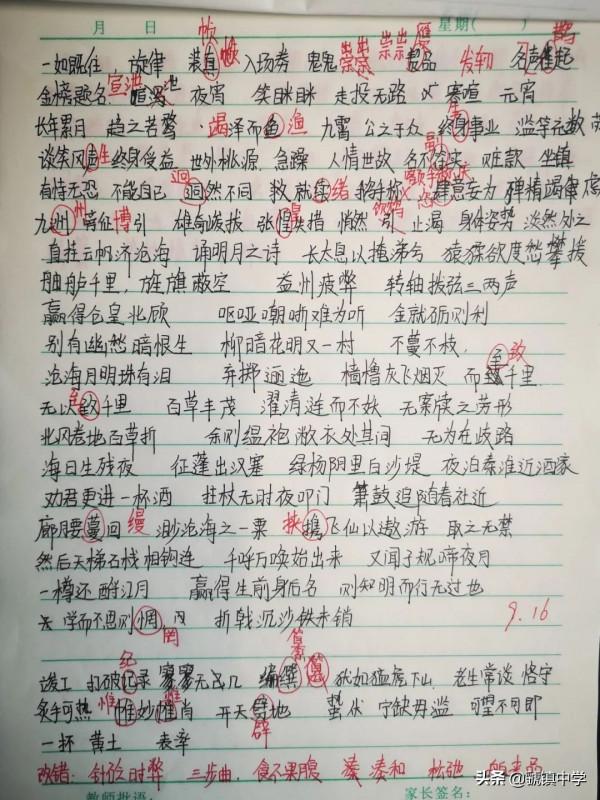 月 日 星期( )
一如既往 旋律 装 帧 入场券 鬼鬼祟祟 赝品 发轫 名声鹊起
金榜题名 宣 池 夜宵 笑眯眯 走投无路 寒暄 元宵
长年累月 趋之若鹜 竭泽而鱼 渔 九霄 公之于众 终身事业 滥竽充数
谈笑风声 生 终身受益 世外桃源 急躁 人情世故 名不副实 赃款 坐镇
有恃无恐 不能自已 迥然不同 就绪 肆意妄为 殚精竭虑
九州 州 旁征博引 博 雄奇峻拔 张皇失措 悄然 止渴 身体姿势 淡然处之
直挂云帆济沧海 诵明月之诗 长太息以掩涕兮 猿猱欲度愁攀援
舳舻千里,旌旗蔽空 益州疲弊 转轴拨弦三两声
赢得仓皇北顾 呕哑嘲哳难为听 金就砺则利
别有幽愁暗恨生 柳暗花明又一村 不蔓不枝
沧海月明珠有泪 弃掷逦迤 樯橹灰飞烟灭 而致千里 至 致
无以致千里 至 百草丰茂 濯清涟而不妖 无案牍之劳形
北风卷地百草折 余则缊袍敝衣处其间 无为在歧路
海日生残夜 征蓬出汉塞 绿杨阴里白沙堤 夜泊秦淮近酒家
劝君更进一杯酒 拄杖无时夜叩门 箫鼓追随春社近
廊腰蔓回 缦 渺沧海之一粟 挟 携飞仙以遨游 取之无禁
然后天梯石栈相钩连 千呼万唤始出来 又闻子规啼夜月
一樽还酹江月 赢得生前身后名 则知明而行无过也
学而不思则惘 罔 折戟沉沙铁未销 9.16
竣工 打破记录 纪 寥寥无几 编纂 纂 犹如猛虎下山 老生常谈 恪守
炙手可热 惟妙惟肖 惟 惟 开天劈地 辟 蛰伏 宁缺毋滥 可望不可即
一抔黄土 表率
改错: 针砭时弊 三步曲 食不果腹 凑 凑和 松弛
教师批语: 家长签名:
头条 @虢镇中学